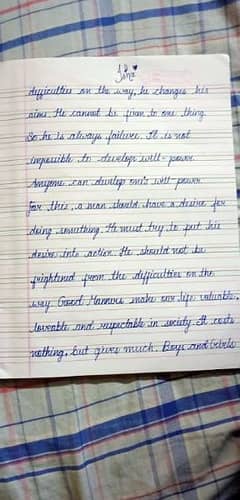 Jina ♥
difficulties on the way, he changes his
aims. He cannot be firm to one thing.
So he is always failure. It is not
impossible to develop will-power.
Anyone can develop one's will power.
For this, a man should have a desire for
doing something. He must try to put his
desire into action. He should not be
frightened from the difficulties on the
way. Good Manners make our life valuable,
loveable and respectable in society. It costs
nothing, but gives much. Boys and Girls